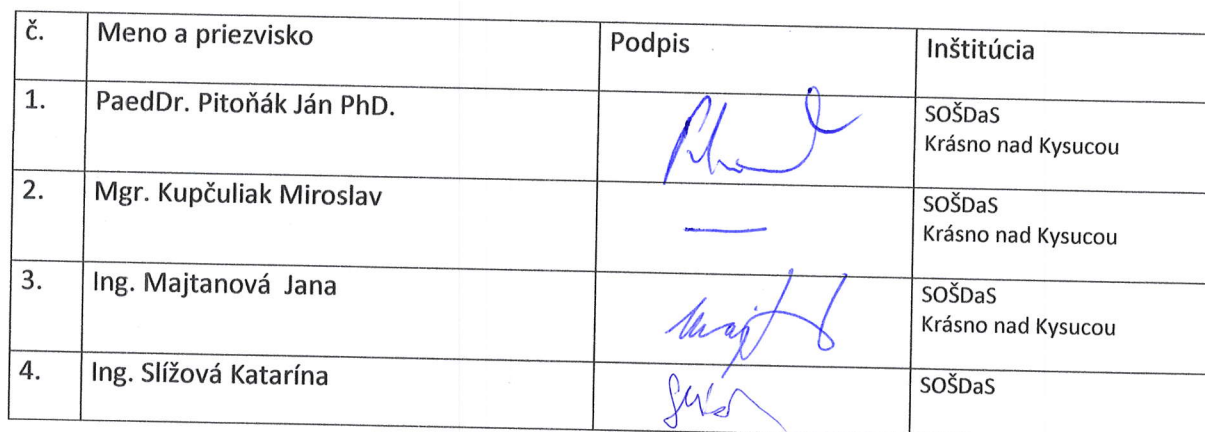 č. Meno a priezvisko Podpis Inštitúcia
1. PaedDr. Pitoňák Ján PhD. SOŠDaS
Krásno nad Kysucou
2. Mgr. Kupčuliak Miroslav — SOŠDaS
Krásno nad Kysucou
3. Ing. Majtanová Jana SOŠDaS
Krásno nad Kysucou
4. Ing. Slížová Katarína SOŠDaS